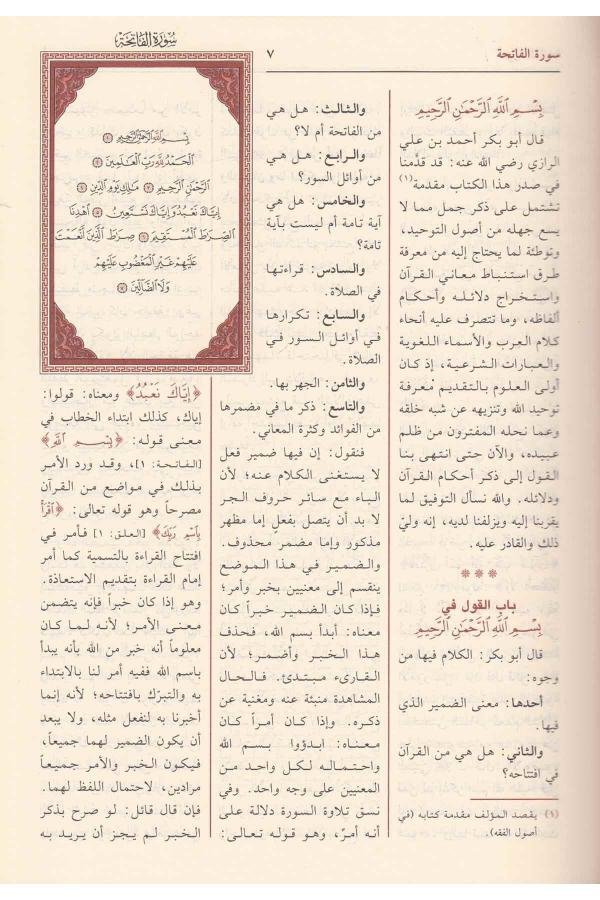 سورة الفاتحة
٧
سورة الفاتحة
بِسْمِ ٱللَّهِ ٱلرَّحْمَٰنِ ٱلرَّحِيمِ
قال أبو بكر أحمد بن علي
الرازي رضي الله عنه: قد قدَّمنا
في صدر هذا الكتاب مقدمة(١)
تشتمل على ذكر جمل مما لا
يسع جهله من أصول التوحيد،
وتوطئة لما يحتاج إليه من معرفة
طرق استنباط معاني القرآن
واستخراج دلائله وأحكام
ألفاظه، وما تتصرف عليه أنحاء
كلام العرب والأسماء اللغوية
والعبارات الشرعية، إذ كان
أولى العلوم بالتقديم مَعرفة
توحيد الله وتنزيهه عن شبه خلقه
وعما نحله المفترون من ظلم
عبيده، والآن حتى انتهى بنا
القول إلى ذكر أحكام القرآن
ودلائله. والله نسأل التوفيق لما
يقربنا إليه ويزلفنا لديه، إنه وليّ
ذلك والقادر عليه.
***
باب القول في
بِسْمِ ٱللَّهِ ٱلرَّحْمَٰنِ ٱلرَّحِيمِ
قال أبو بكر: الكلام فيها من
وجوه:
أحدها: معنى الضمير الذي
فيها.
والثاني: هل هي من القرآن
في افتتاحه؟
(١) يقصد المؤلف مقدمة كتابه (في
أصول الفقه).
والثالث: هل هي
من الفاتحة أم لا؟
والرابع: هل هي
من أوائل السور؟
والخامس: هل هي
آية تامة أم ليست بآية
تامة؟
والسادس: قراءتها
في الصلاة.
والسابع: تكرارها
في أوائل السور في
الصلاة.
والثامن: الجهر بها.
والتاسع: ذكر ما في مضمرها
من الفوائد وكثرة المعاني.
فنقول: إن فيها ضمير فعل
لا يستغنى الكلام عنه؛ لأن
الباء مع سائر حروف الجر
لا بد أن يتصل بفعلٍ إما مظهر
مذكور وإما مضمر محذوف.
والضمير في هذا الموضع
ينقسم إلى معنيين بخبر وأمر؛
فإذا كان الضمير خبراً كان
معناه: أبدأ بسم الله، فحذف
هذا الخبر وأضمر؛ لأن
القارىء مبتدئ. فالحال
المشاهدة منبئة عنه ومغنية عن
ذكره. وإذا كان أمراً كان
معناه: ابدؤوا بسم الله
واحتماله لكل واحد من
المعنيين على وجه واحد. وفي
نسق تلاوة السورة دلالة على
أنه أمرٌ، وهو قوله تعالى:
بِسْمِ ٱللَّهِ ٱلرَّحْمَٰنِ ٱلرَّحِيمِ ١
ٱلْحَمْدُ لِلَّهِ رَبِّ ٱلْعَٰلَمِينَ ٢
ٱلرَّحْمَٰنِ ٱلرَّحِيمِ ٣ مَٰلِكِ يَوْمِ ٱلدِّينِ ٤
إِيَّاكَ نَعْبُدُ وَإِيَّاكَ نَسْتَعِينُ ٥ ٱهْدِنَا
ٱلصِّرَٰطَ ٱلْمُسْتَقِيمَ ٦ صِرَٰطَ ٱلَّذِينَ أَنْعَمْتَ
عَلَيْهِمْ غَيْرِ ٱلْمَغْضُوبِ عَلَيْهِمْ
وَلَا ٱلضَّآلِّينَ ٧
﴿إِيَّاكَ نَعْبُدُ﴾ ومعناه: قولوا:
إياك، كذلك ابتداء الخطاب في
معنى قوله: ﴿بِسْمِ ٱللَّهِ﴾
[الفاتحة: ١]، وقد ورد الأمر
بذلك في مواضع من القرآن
مصرحاً وهو قوله تعالى: ﴿ٱقْرَأْ
بِٱسْمِ رَبِّكَ﴾ [العلق: ١] فأمر في
افتتاح القراءة بالتسمية كما أمر
إمام القراءة بتقديم الاستعاذة.
وهو إذا كان خبراً فإنه يتضمن
معنى الأمر؛ لأنه لما كان
معلوماً أنه خبر من الله بأنه يبدأ
باسم الله ففيه أمر لنا بالابتداء
به والتبرّك بافتتاحه؛ لأنه إنما
أخبرنا به لنفعل مثله، ولا يبعد
أن يكون الضمير لهما جميعاً،
فيكون الخبر والأمر جميعاً
مرادين، لاحتمال اللفظ لهما.
فإن قال قائل: لو صرح بذكر
الخبر لم يجز أن يريد به